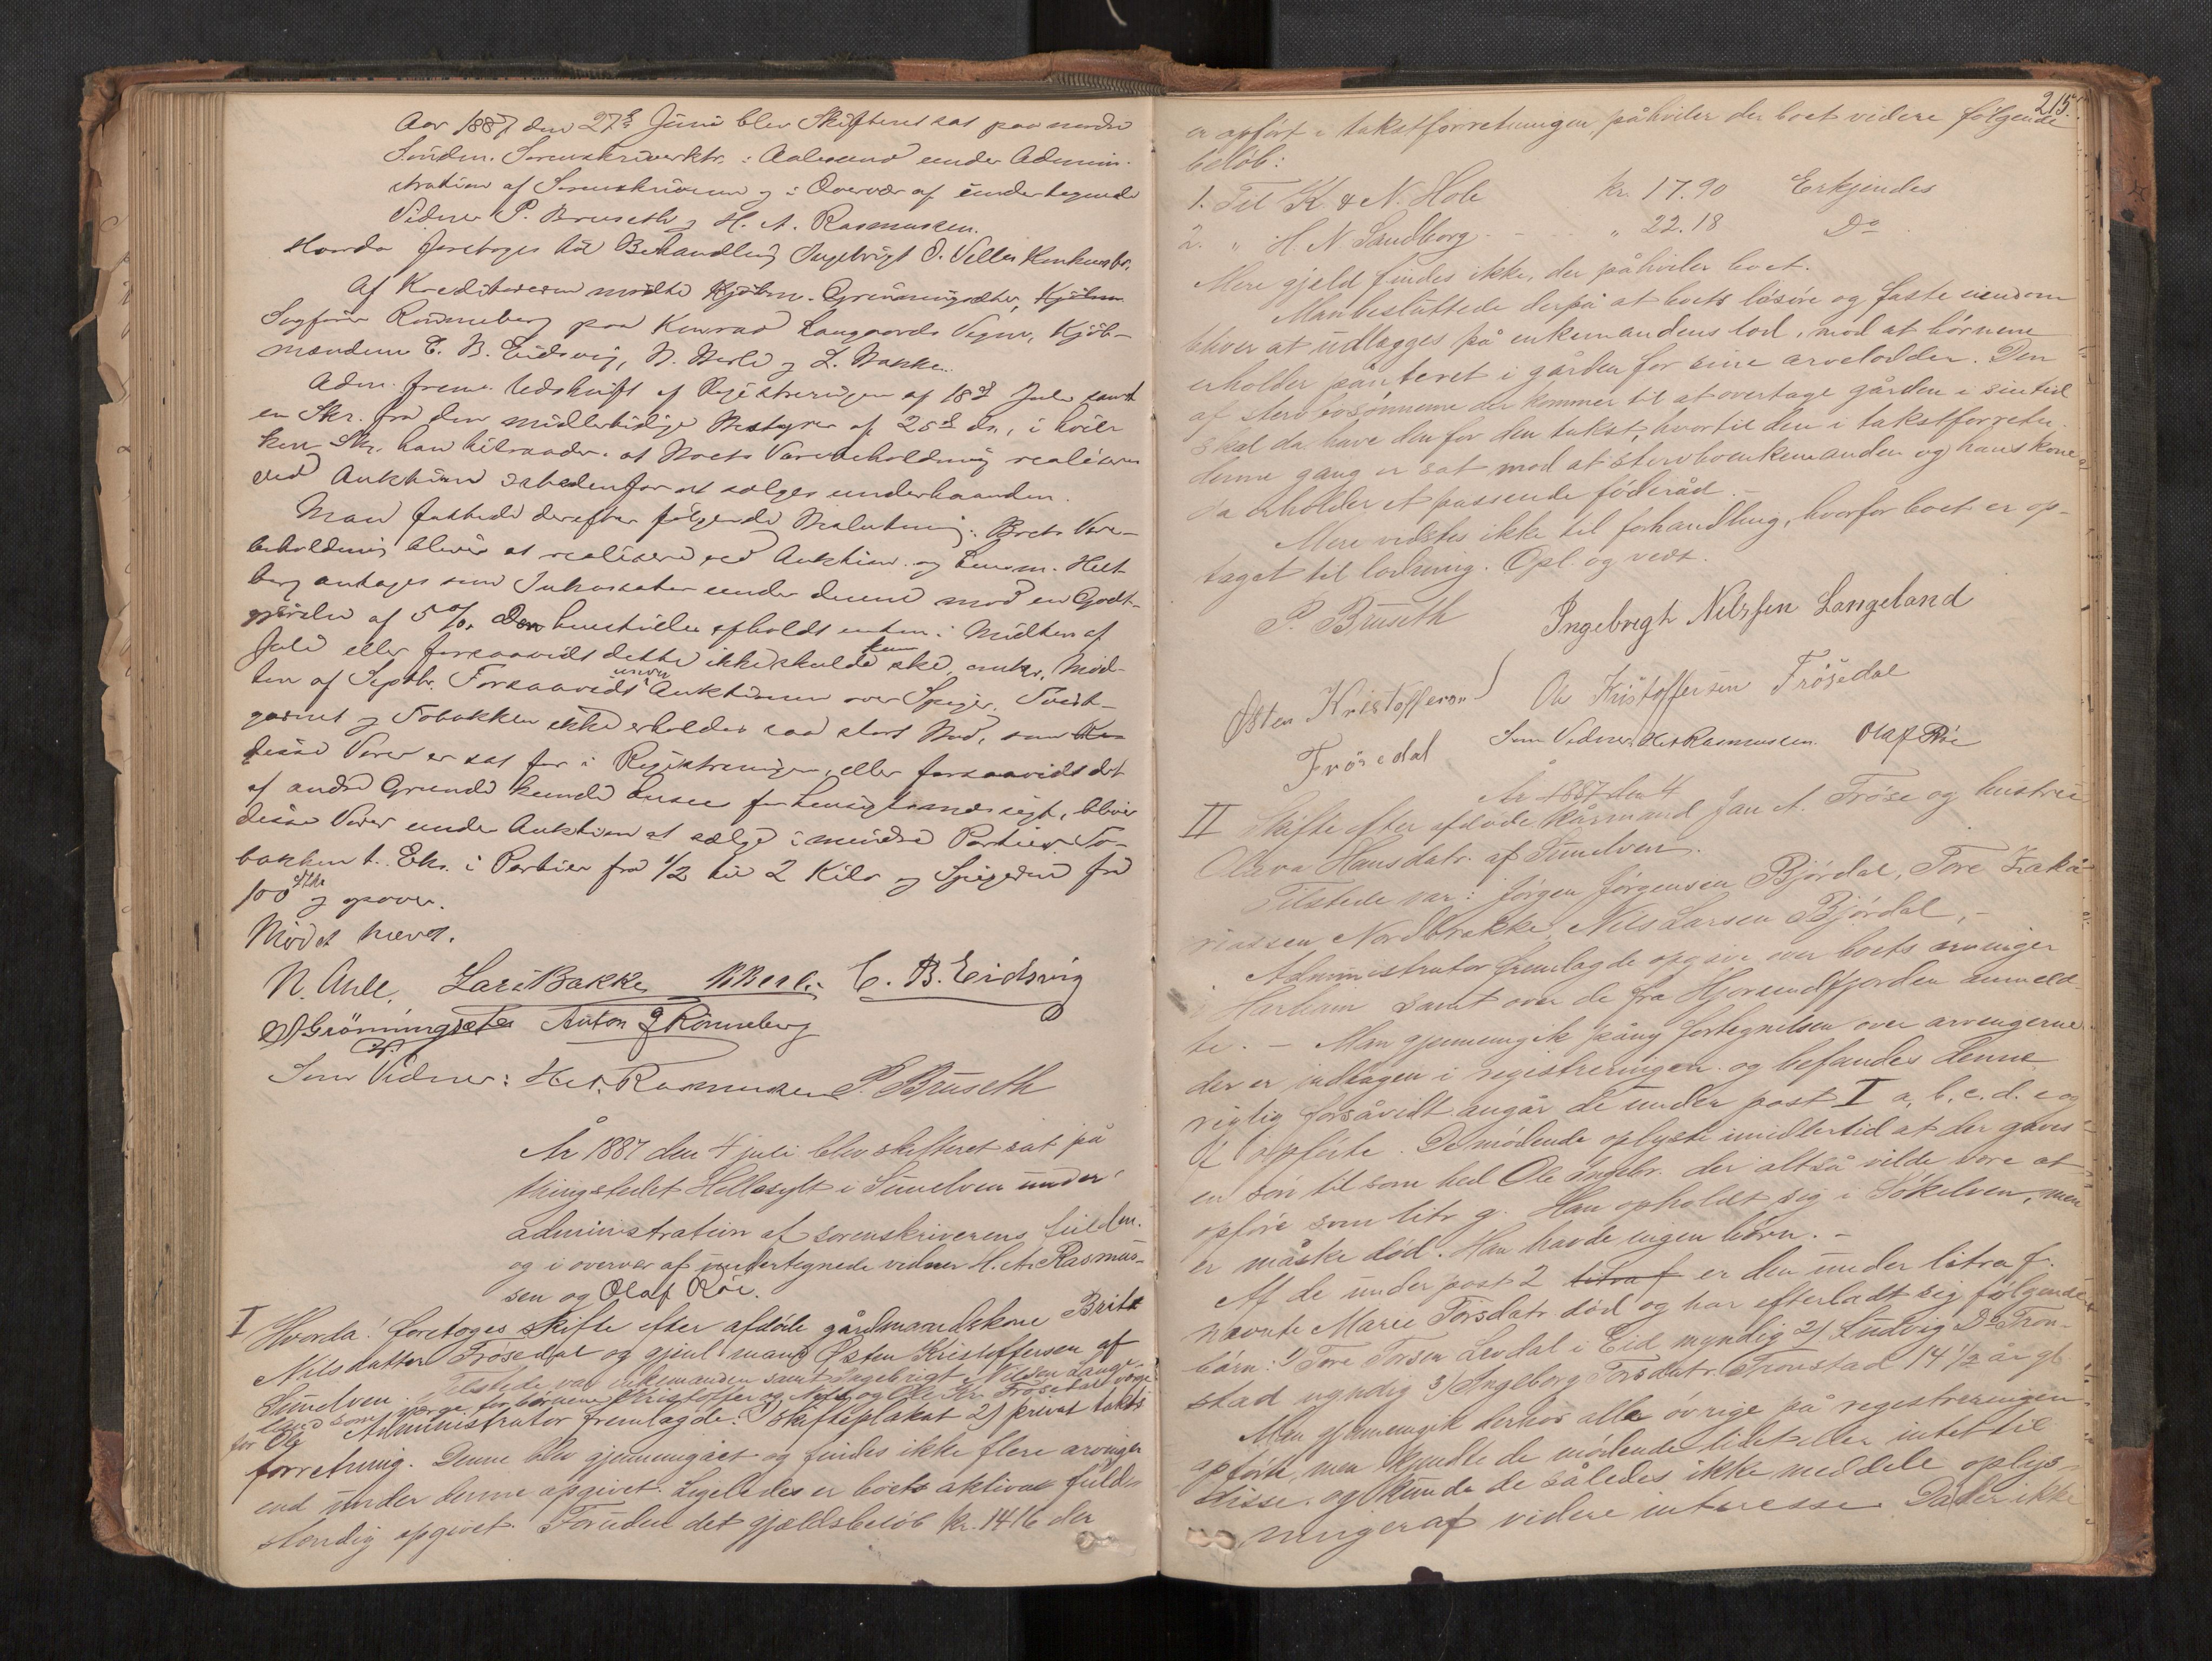 Aar 1887 den 27de Juni blev Skifteret sat paa nordre
Söndm. Sorenskriverktr. i Aalesund under Admini-
stration af Sorenskriveren og i Overvær af undertegnede
Vidner P. Bruseth og H. A. Rasmussen.
Hvorda foretoges til Behandling Ingebrigt O. Velles Konkursbo.
Af Kreditorerne mödte Kjöbm. Grönningsæter,
Sagförer Rönneberg paa Konrad Langaards Vegne, Kjöb-
mændene C. B. Eidsvig, N. Aarle og L. Bakke.
Adm. frem. Udskrift af Registreringen af 18de Juli samt
en Skr. fra den midlertidige Bestyrer af 25de ds., i hvil-
ken Skr. han tilraader at Boets Varebeholdning realiseres
ved Auktion istedenfor at sælges underhaanden.
Man fattede derefter fölgende Beslutning: Boets Vare-
beholdning bliver at realisere ved Auktion og Lensm. Helt-
berg antages som Inkassator under denne mod en Godt-
gjörelse af 5 %. Den afholdes enten i Midten af
Juli eller forsaavidt dette ikke skulde kunne ske, omkr. Mid-
ten af Septbr. Forsaavidt under Auktionen over Spiger,
garnet og Tobakken ikke erholdes saa stort Bud, som
disse Varer er sat for i Registreringen, eller forsaavidt det
af andre Grunde kunde ansees for hensigtsmæssigt, bliver
disse Varer under Auktionen at sælge i mindre Partier To-
bakken t. Eks. i Partier fra 1/2 til 2 Kilo og Spigerne fra
100 Stk og opover.
Mödet hævet.
N. Aarle. Lars Bakke C. B. Eidsvig
Grönningsæter Anton Rönneberg
Som Vidner: H. A. Rasmussen P. Bruseth
År 1887 den 4 juli blev skifteret sat på
thingstedet Hellesylt i Sunelven under
administration af sorenskriverens fuldm.
og i overvær af undertegnede vidner H. A. Rasmus-
sen og Olaf Röe.
I Hvorda! foretoges skifte efter afdöde gårdmandskone Brite
Nilsdatter Frösedal og gjenl. mand Østen Kristoffersen af
Sunelven. Tilstede var enkemanden samt Ingebrigt Nilsen Lange-
land som værge for börnene Kristoffer og Nils og Ole Kr. Frösedal værge
for Ole Administrator fremlagde: 1) skifteplakat 2) privat takst-
forretning. Denne blev gjennemgået og findes ikke flere arvinger
end under denne opgivet. Ligeledes er boets aktiva fuld-
stændig opgivet. Foruden det gjældsbelöb kr. 1416 der
215.
er opfört i takstforretningen, påhviler der boet videre fölgende
belöb:
1. Til K. & N. Hole kr. 17.90 Erkjendes
2. " H. N. Landborg - " 22.18 Do
Mere gjæld findes ikke, der påhviler boet.
Man besluttede derpå at boets lösöre og faste eiendom
bliver at udlægges på enkemandens lod, mod at börnene
erholder panteret i gården for sine arvelodder. Den
af sterbosönnerne der kommer til at overtage gården i sin tid
skal da have den for den takst, hvortil den i takstforretn.
denne gang er sat mod at sterboenkemanden og hans kone
da erholder et passende föderåd. -
Mere vidstes ikke til forhandling, hvorfor boet er op-
taget til lodning. Opl. og vedt.
P. Bruseth Ingebregt Nilssen Langeland
Østen Kristofferson Ole Kristoffersen Frösedal
Frösedal Som Vidner H A Rasmussen. Olaf Röe
År 1887 den 4
II Skifte efter afdöde kårmand Jan A. Fröse og hustru
Olava Hansdatr. af Sunelven.
Tilstede var: Jörgen Jörgensen Björdal, Tore Zaka-
riassen Nordbrekke, Nils Larsen Björdal, -
Administrator fremlagde opgave over boets arvinger
i Harham samt over de fra Hjorendfjorden anmeld-
te. - Man gjennemgik påny fortegnelsen over arvingerne
der er indtagen i registreringen og befandtes denne
rigtig forsåvidt angår de under post I a, b, c. d. e og
f opförte. De mödende oplyste imidlertid at der gaves
en sön til som hed Ole Ingebr. der altså vilde være at
opföre som litr g. Han opholdt sig i Sökelven, men
er måske död. Han havde ingen börn. -
Af de under post 2 litra f er den under litra f.
nævnte Marie Torsdatr död og har efterladt sig fölgende
börn: 1) Tore Torsen Levdal i Eid myndig 2) Ludvig Do Tron-
stad myndig 3) Ingeborg Torsdatr. Tronstad 14 1/2 år gl.
Man gjennemgik derhos alle övrige på registreringen
opförte, men kjendte de mödende lidet eller intet til
disse og kunde de således ikke meddele oplys-
ninger af videre interesse. Da der ikke